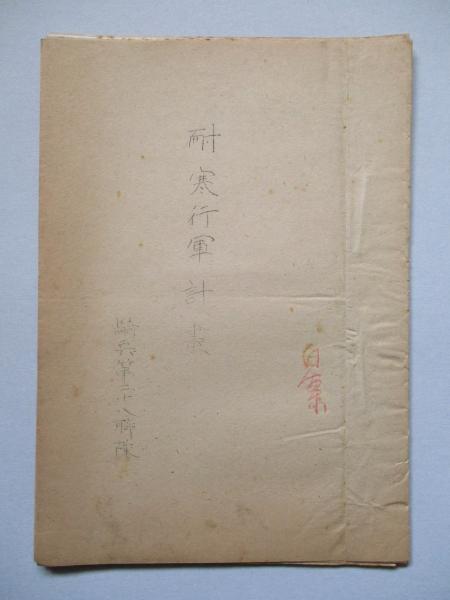 耐寒行軍計畫
騎兵第二十八聯隊